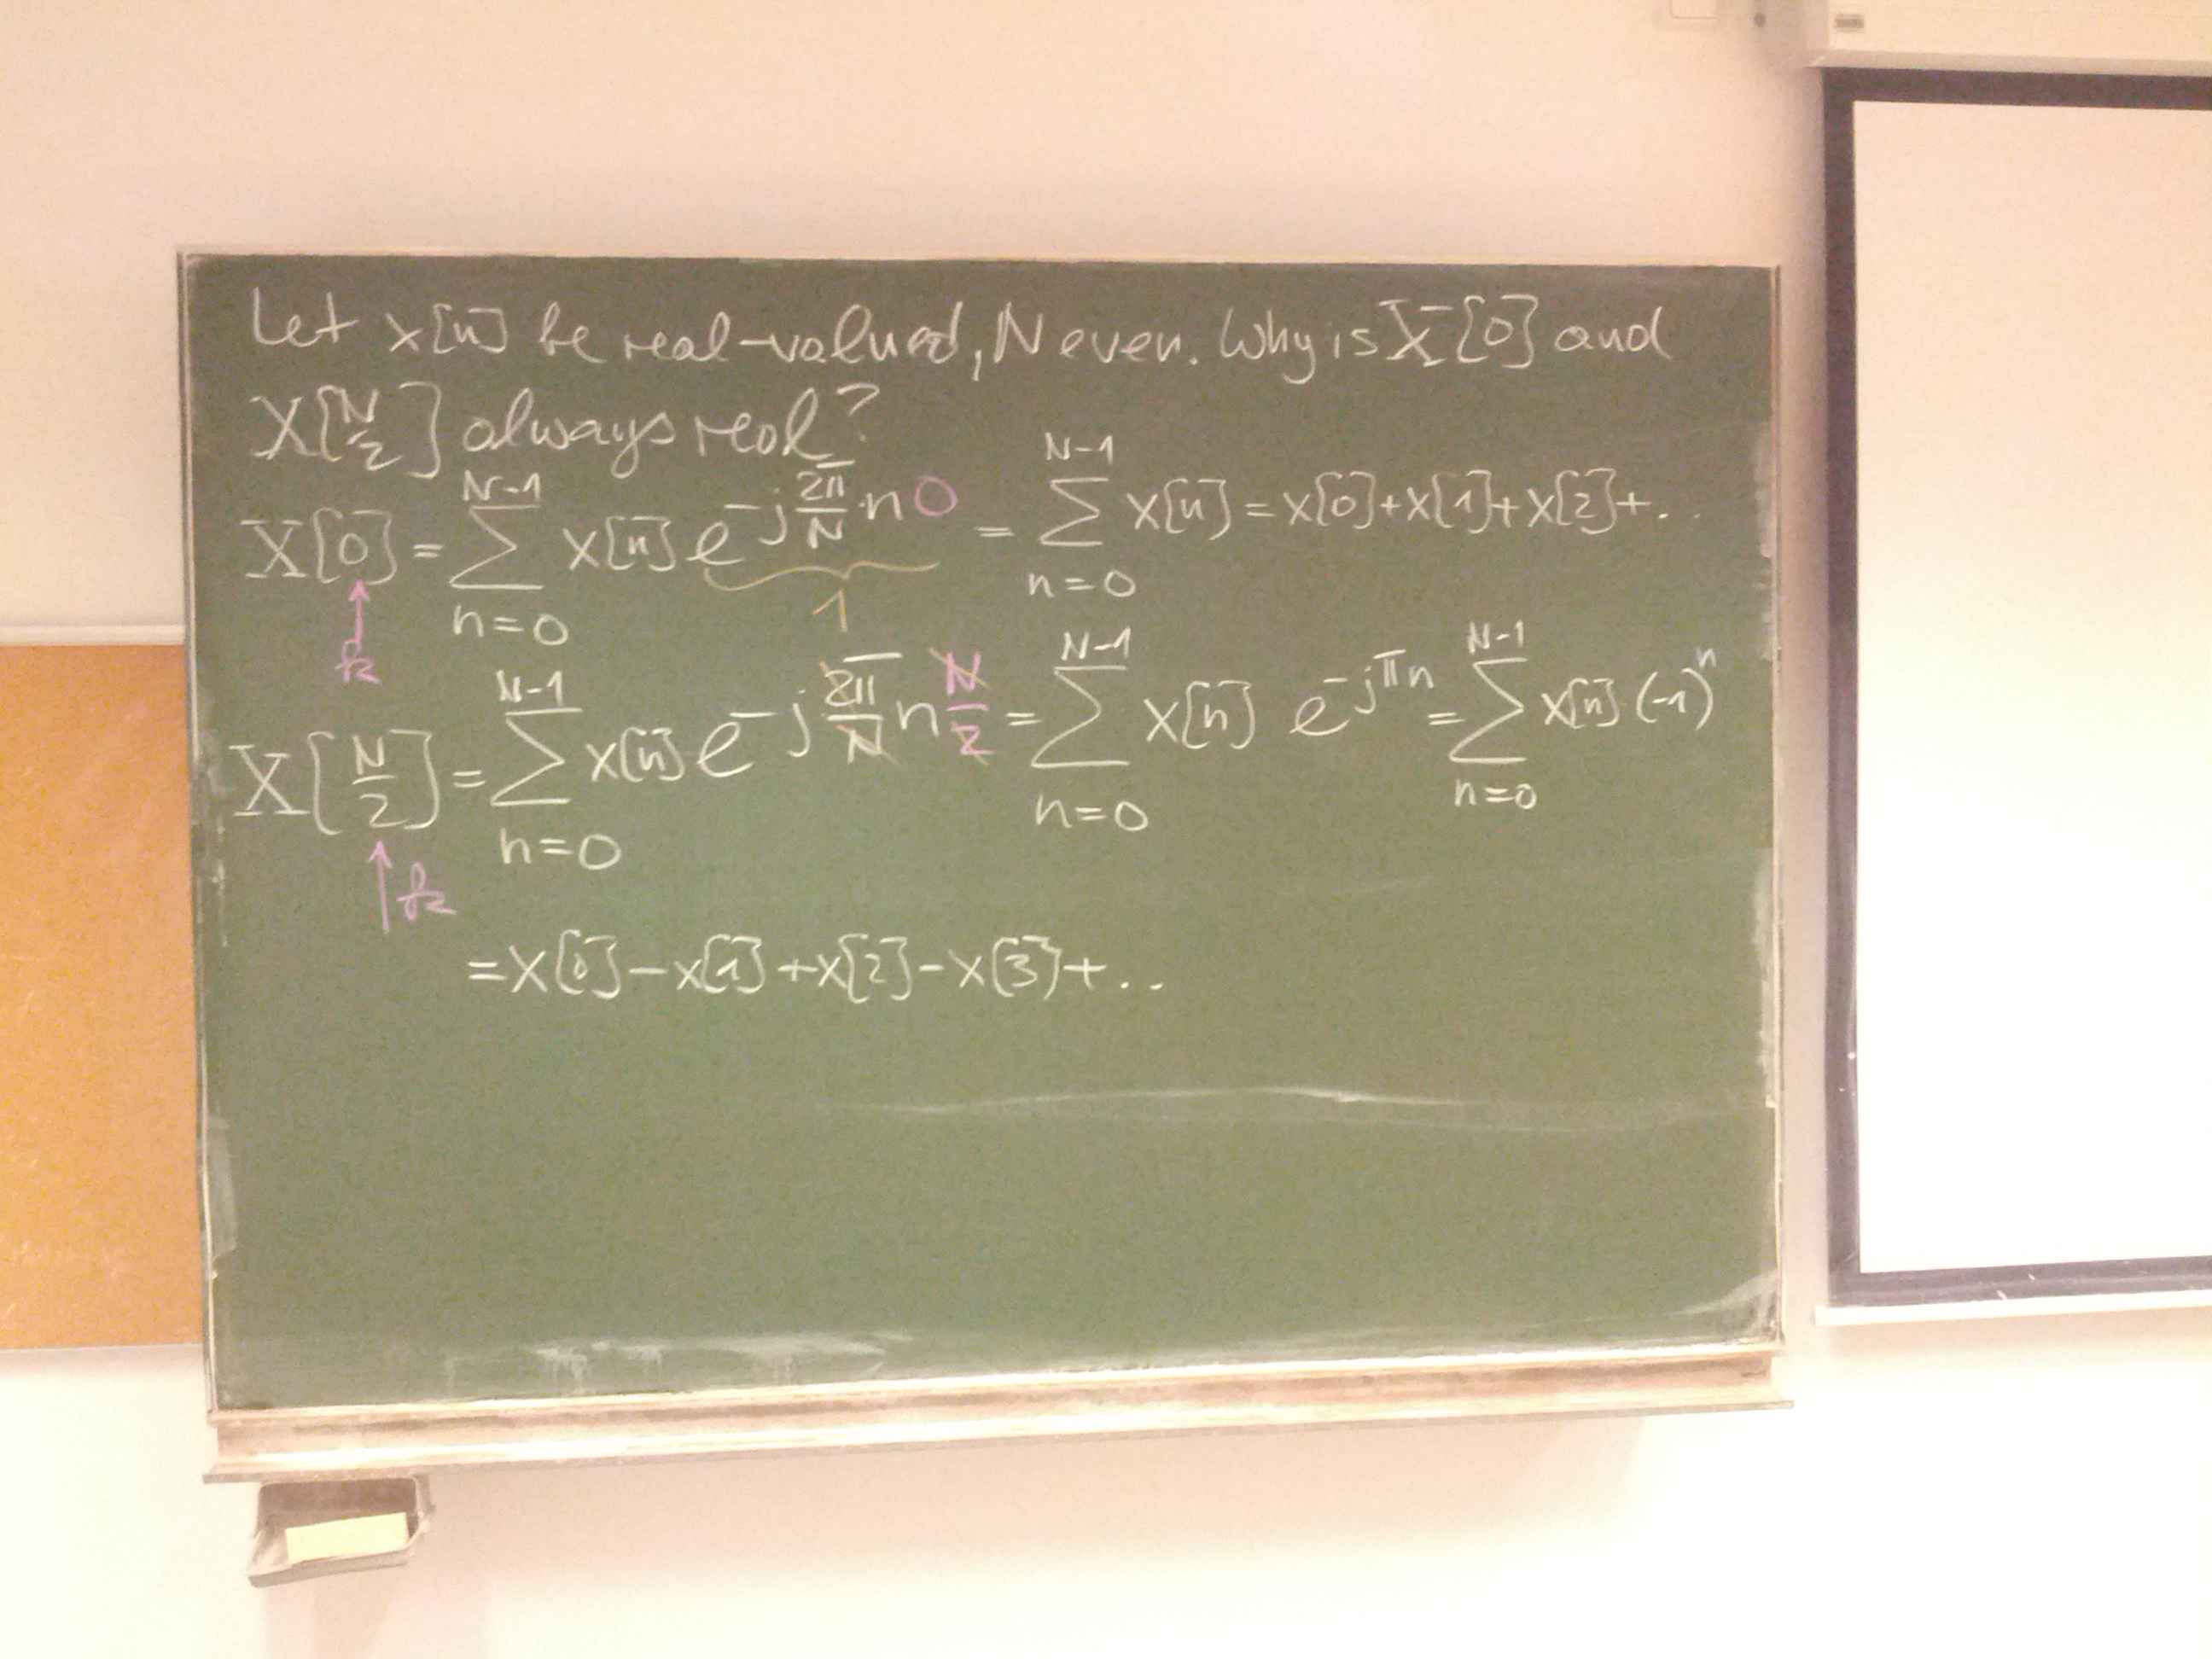 Let x[n] be real-valued, N even. Why is X[0] and
X[N/2] always real?
X[0] = ∑_{n=0}^{N-1} x[n] e^{-j 2π/N · n 0} = ∑_{n=0}^{N-1} x[n] = x[0]+x[1]+x[2]+..
k
1
X[N/2] = ∑_{n=0}^{N-1} x[n] e^{-j 2π/N n N/2} = ∑_{n=0}^{N-1} x[n] e^{-jπn} = ∑_{n=0}^{N-1} x[n] (-1)^n
k
= x[0] - x[1] + x[2] - x[3] + ..